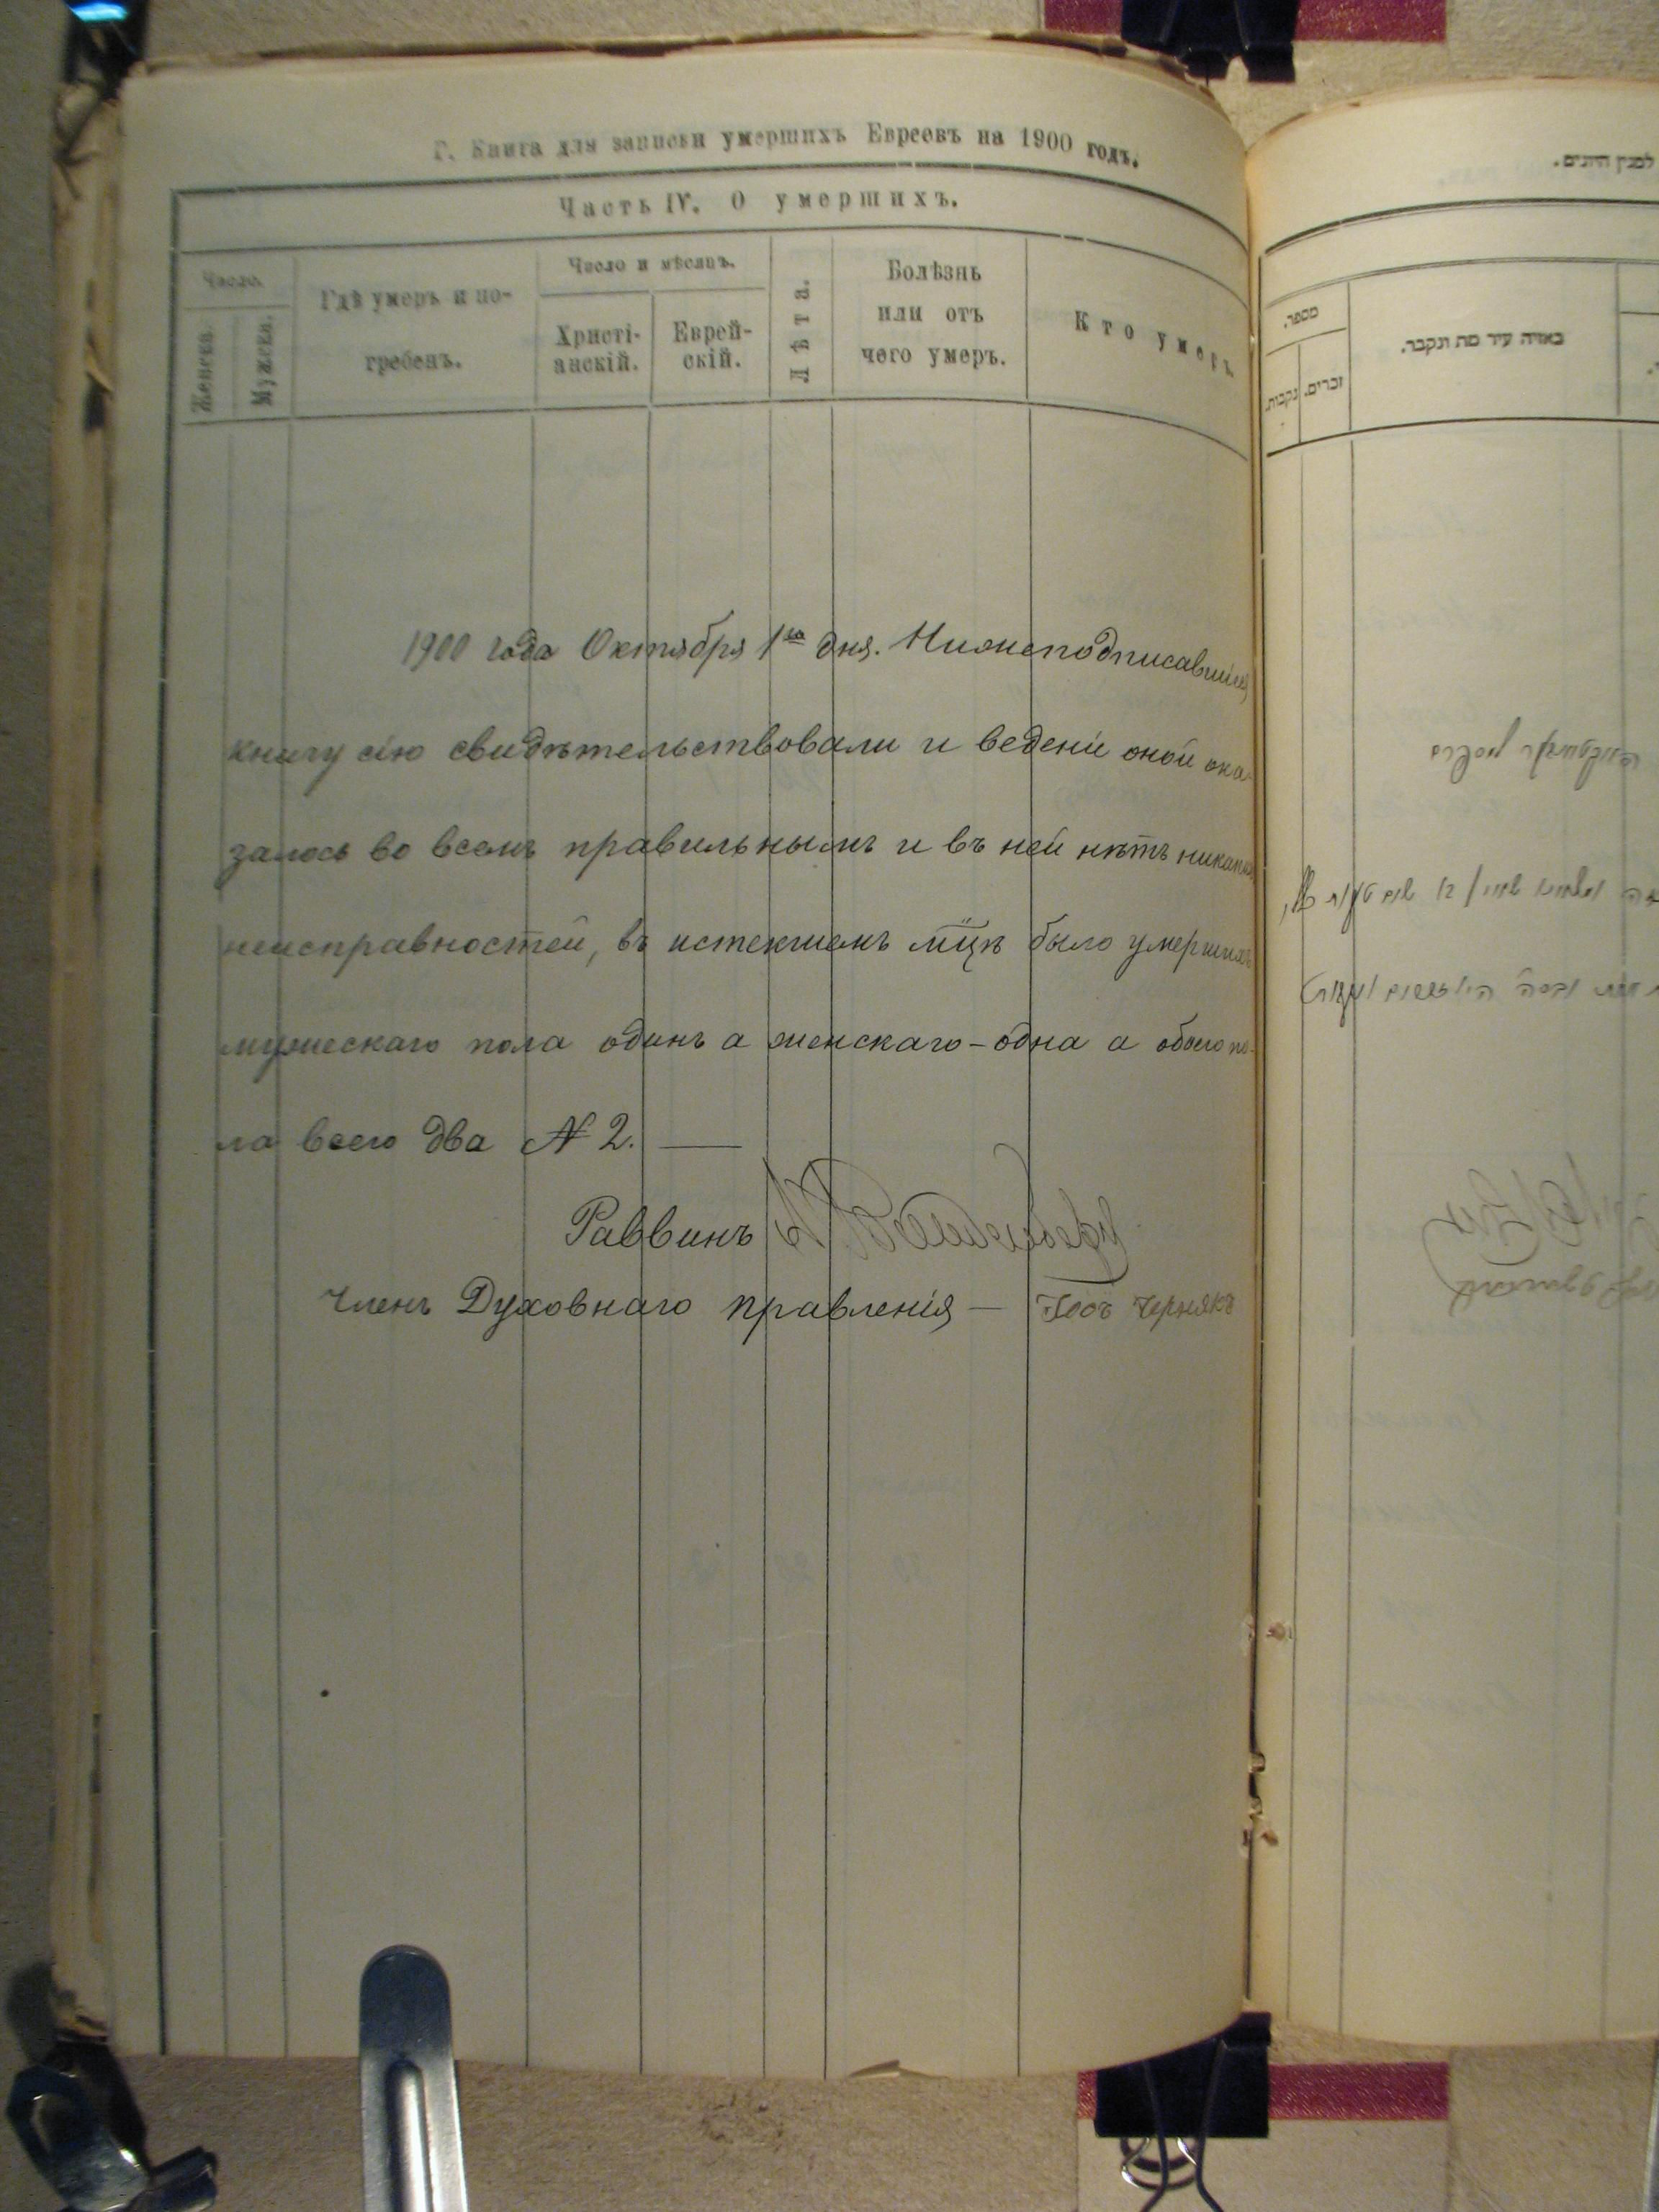 Г. Книга для записки умершихъ Евреевъ на 1900 годъ.
Часть IV. О умершихъ.
Число.
Женска.
Мужеска.
Гдѣ умеръ и по-
гребенъ.
Число и мѣсяцъ.
Христі-
анскій.
Еврей-
скій.
Лѣта.
Болѣзнь
или отъ
чего умеръ.
Кто умеръ
1900 года Октября 1го дня. Нижеподписавшіеся
книгу сію свидѣтельствовали и веденіе оной ока-
залось во всемъ правильнымъ и въ ней нѣтъ никакихъ
неисправностей, въ истекшемъ мцѣ было умершихъ
мужескаго пола одинъ а женскаго – одна а обоего по-
ла всего два № 2. —
Раввинъ
Членъ Духовнаго правленія —  Чернякъ
למנין היונים.
מספר.
זכרים.
נקבות.
באיזה עיר מת ונקבר.